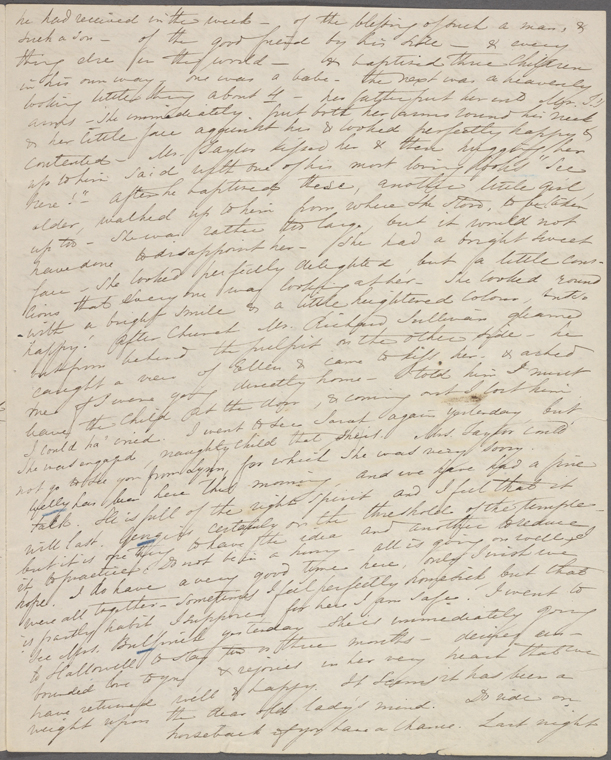 he had received in the week – of the blessing of such a man, &
such a son – of the good friend by his side – & every
thing else in the world – & baptized three children
in his own way, one was a babe – the next was a heavenly
looking little thing about 4 – her father put her into Mr. T's
arms – She immediately put both her arms round his neck
& her little face against his & looked perfectly happy &
contented – Mr. Taylor kissed her & then hugging her
up to him said with one of his most loving looks "See
here!" After he baptized these, another little girl,
older, walked up to him from where she stood, to be taken
up too – She was rather too large, but it would not
have done to disappoint her – She had a bright sweet
face – She looked perfectly delighted but a little cons-
cious that every one was looking at her. She looked round
with a bright smile & a little heightened colour, so
happy! After Church Mr. Richard Sullivan gleamed
out from behind the pulpit on the other side – he
caught a view of Ellen & came to kiss her, & asked
me if I were going directly home – I told him I must
leave the Child at the door, & coming out I lost him
I could ha' cried. I went to see Sarah again yesterday but
She was engaged, naughty child that she is. Mrs. Taylor could
not go to see you from Lynn, for which She was very sorry.
Welly has been here this morning and we have had a fine
talk. He is full of the right spirit and I feel that it
will last. George is certainly on the threshold of the temple –
but it is one thing to have the idea and another to reduce
it to practice. Do not be in a hurry – all is going on well I
hope. I do have a very good time here, only I wish we
were all together – Sometimes I feel perfectly homesick but that
is partly habit I suppose, for here I am safe. I went to
see Mrs. yesterday She is immediately going
to Hallowell to stay two or three months – deeps un-
bounded love to you & rejoices in her very heart that we
have returned well & happy. It seems it has been a
weight upon the dear old lady's mind. Do ride on
horseback if you have a chance. Last night